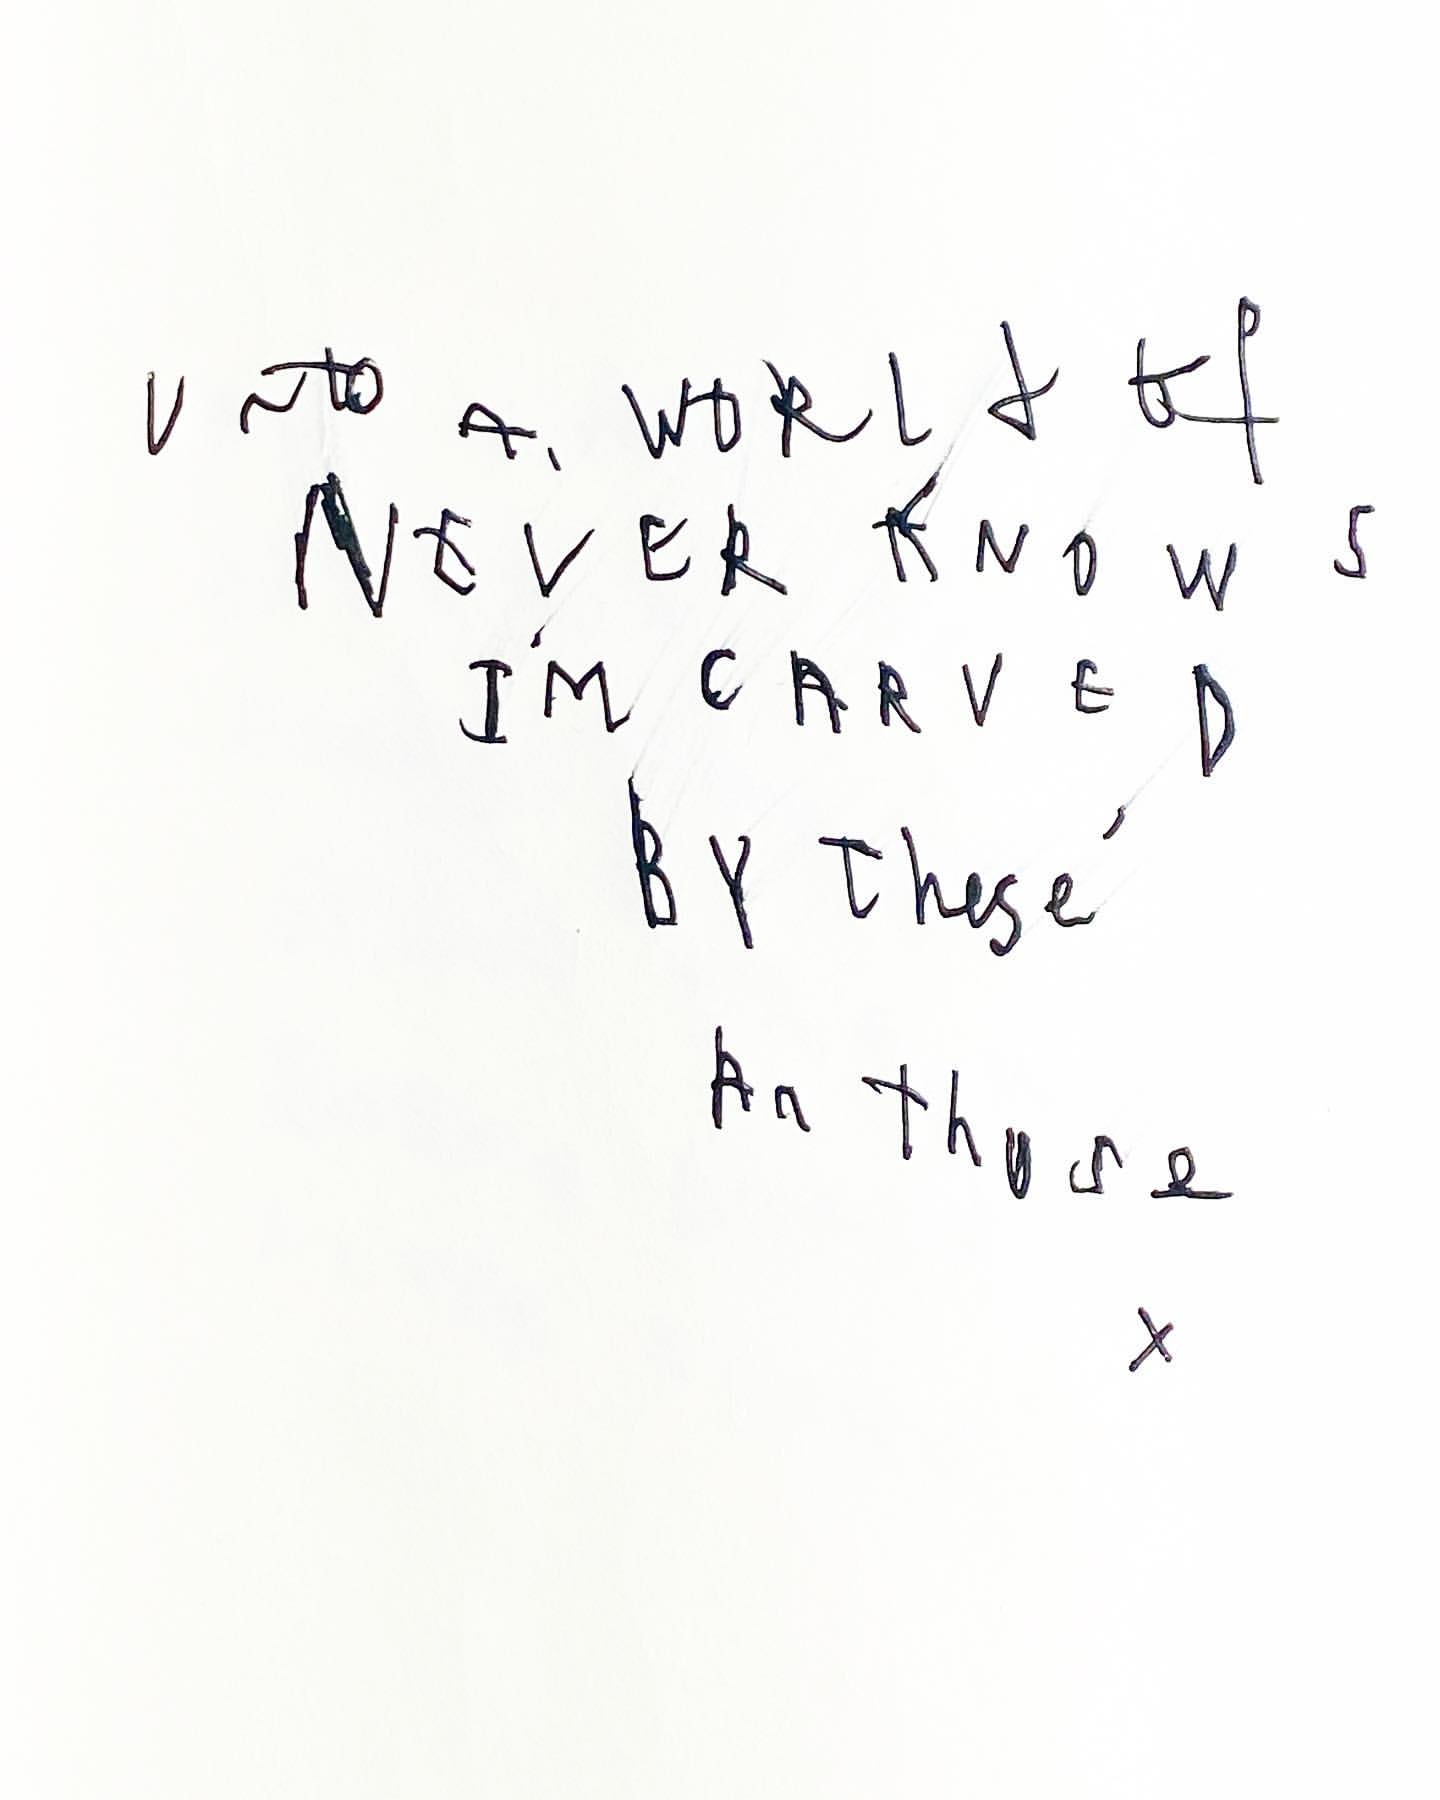 UNTO A, WORLD of
NEVER KNOWS
I'M CARVED
BY these'
An those
x